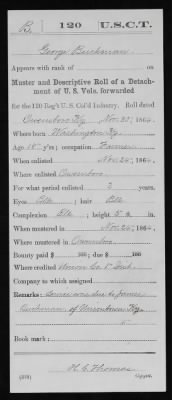 B. 120 U.S.C.T.
George Buckman
Appears with rank of on
Muster and Descriptive Roll of a Detach-
ment of U. S. Vols. forwarded
for the 120 Reg't U.S. Col'd Infantry. Roll dated
Owensboro Ky Nov. 25, 1864.
Where born Washington Ky.
Age 18 y'rs; occupation Farmer
When enlisted Nov. 25, 1864.
Where enlisted Owensboro
For what period enlisted 3 years.
Eyes Blk; hair Blk
Complexion Blk; height 5 ft. in.
When mustered in Nov. 25, 1864.
Where mustered in Owensboro
Bounty paid $ 100; due $ 100
Where credited Union Co. Dist.
Company to which assigned
Remarks: due to James
Buckman, of Uniontown Ky.
Book mark:
H. C. Thomas
Copyist.